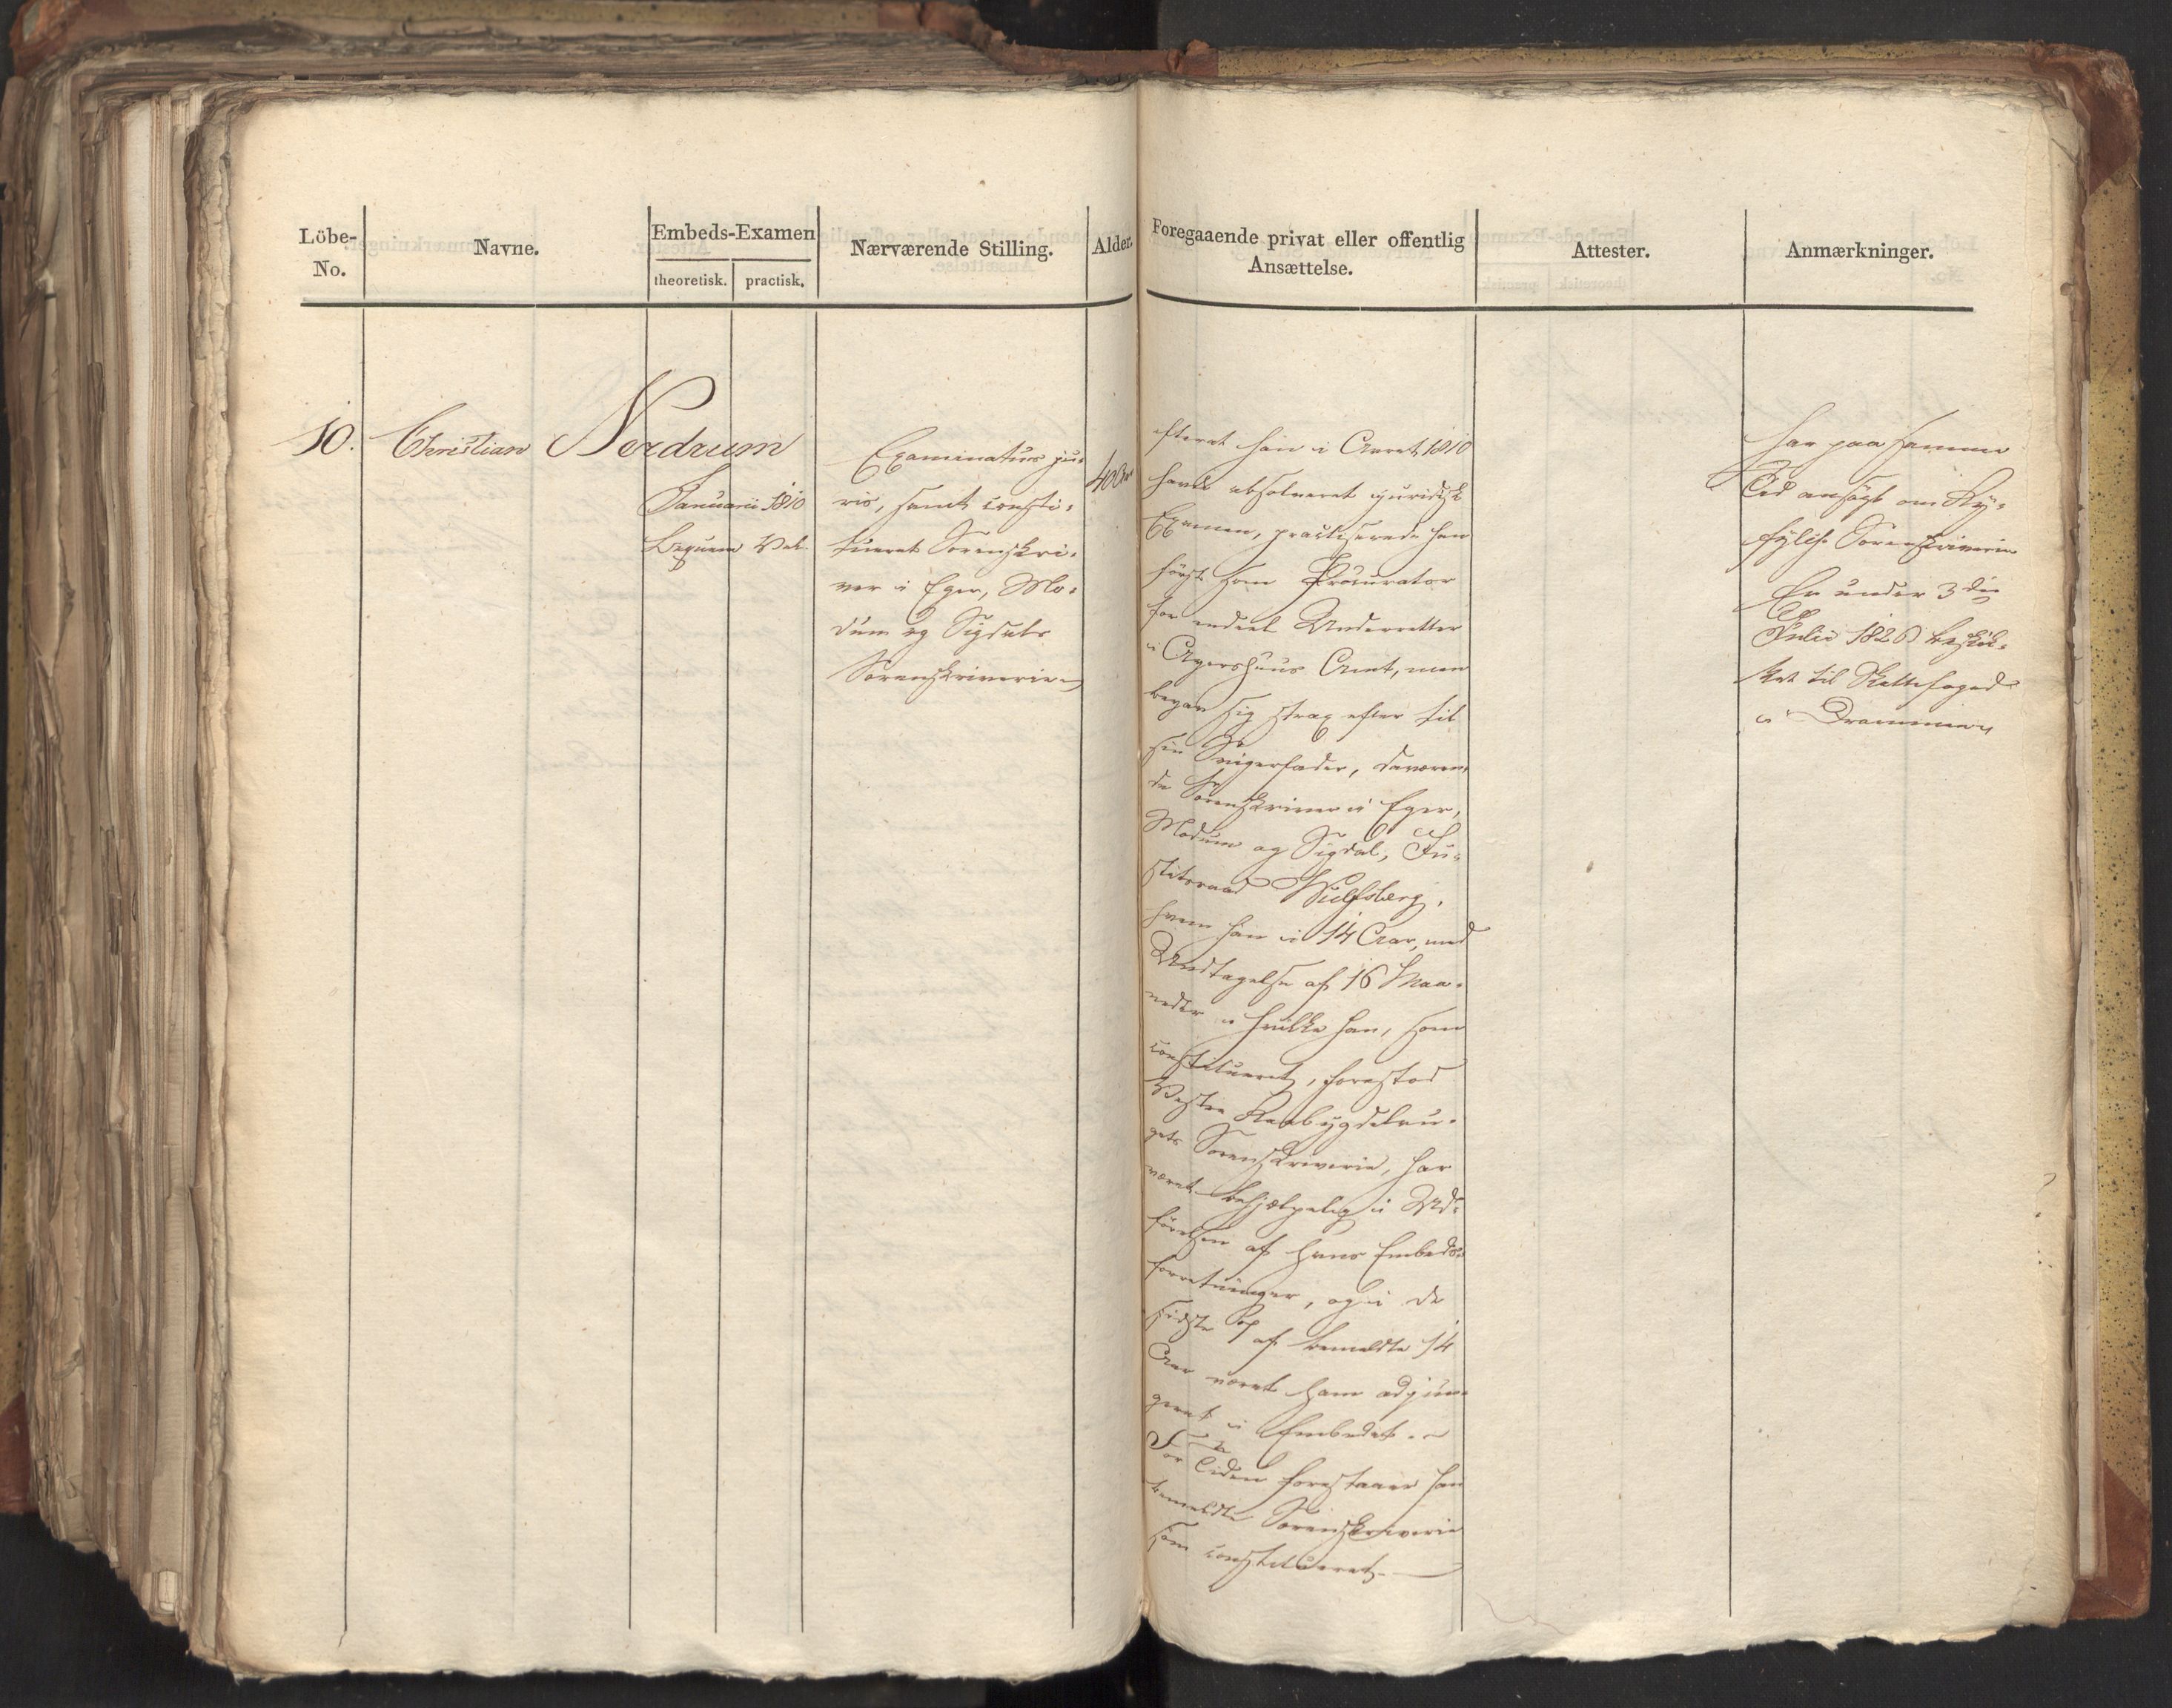 Löbe-No.
Navne.
Embeds-Examen
theoretisk.
practisk.
Nærværende Stilling.
Alder.
Foregaaende privat eller offentlig
Ansættelse.
Attester.
Anmærkninger.
10.
Christian Nerdrum
Januarii 1810
beqvem Vel.
Examinatus ju-
ris, samt consti-
tueret Sorenskri-
ver i Eger, Mo-
dum og Sigdals
Sorenskriverie
40 Aar
efterat han i Aaret 1810
havde absolveret juridisk
Examen, practiserede han
først som Procurator
for endeel Underretter
i Agershuus Amt, men
begav sig strax efter til
sin Svigerfader, daværen-
de Sorenskriver i Eger,
Modum og Sigdal, Ju-
stitsraad Wulfsberg,
hvem han i 14 Aar, med
Undtagelse af 16 Maa-
neder i hvilke han, som
constitueret, forestod
Vestre Raabygdelau-
gets Sorenskriverie, har
været behjælpelig i Ud-
førelsen af hans Embeds-
forretninger, og i de
sidste af bemeldte 14
Aar været ham adjun-
geret i Embedet. –
For Tiden forestaaer han
bemeldte Sorenskriverie
som constitueret. –
Har paa samme
Tid ansøgt om Ry-
fylke Sorenskriverie
Er under 3die
Julii 1826 beskik-
ket til Skattefoged
i Drammen